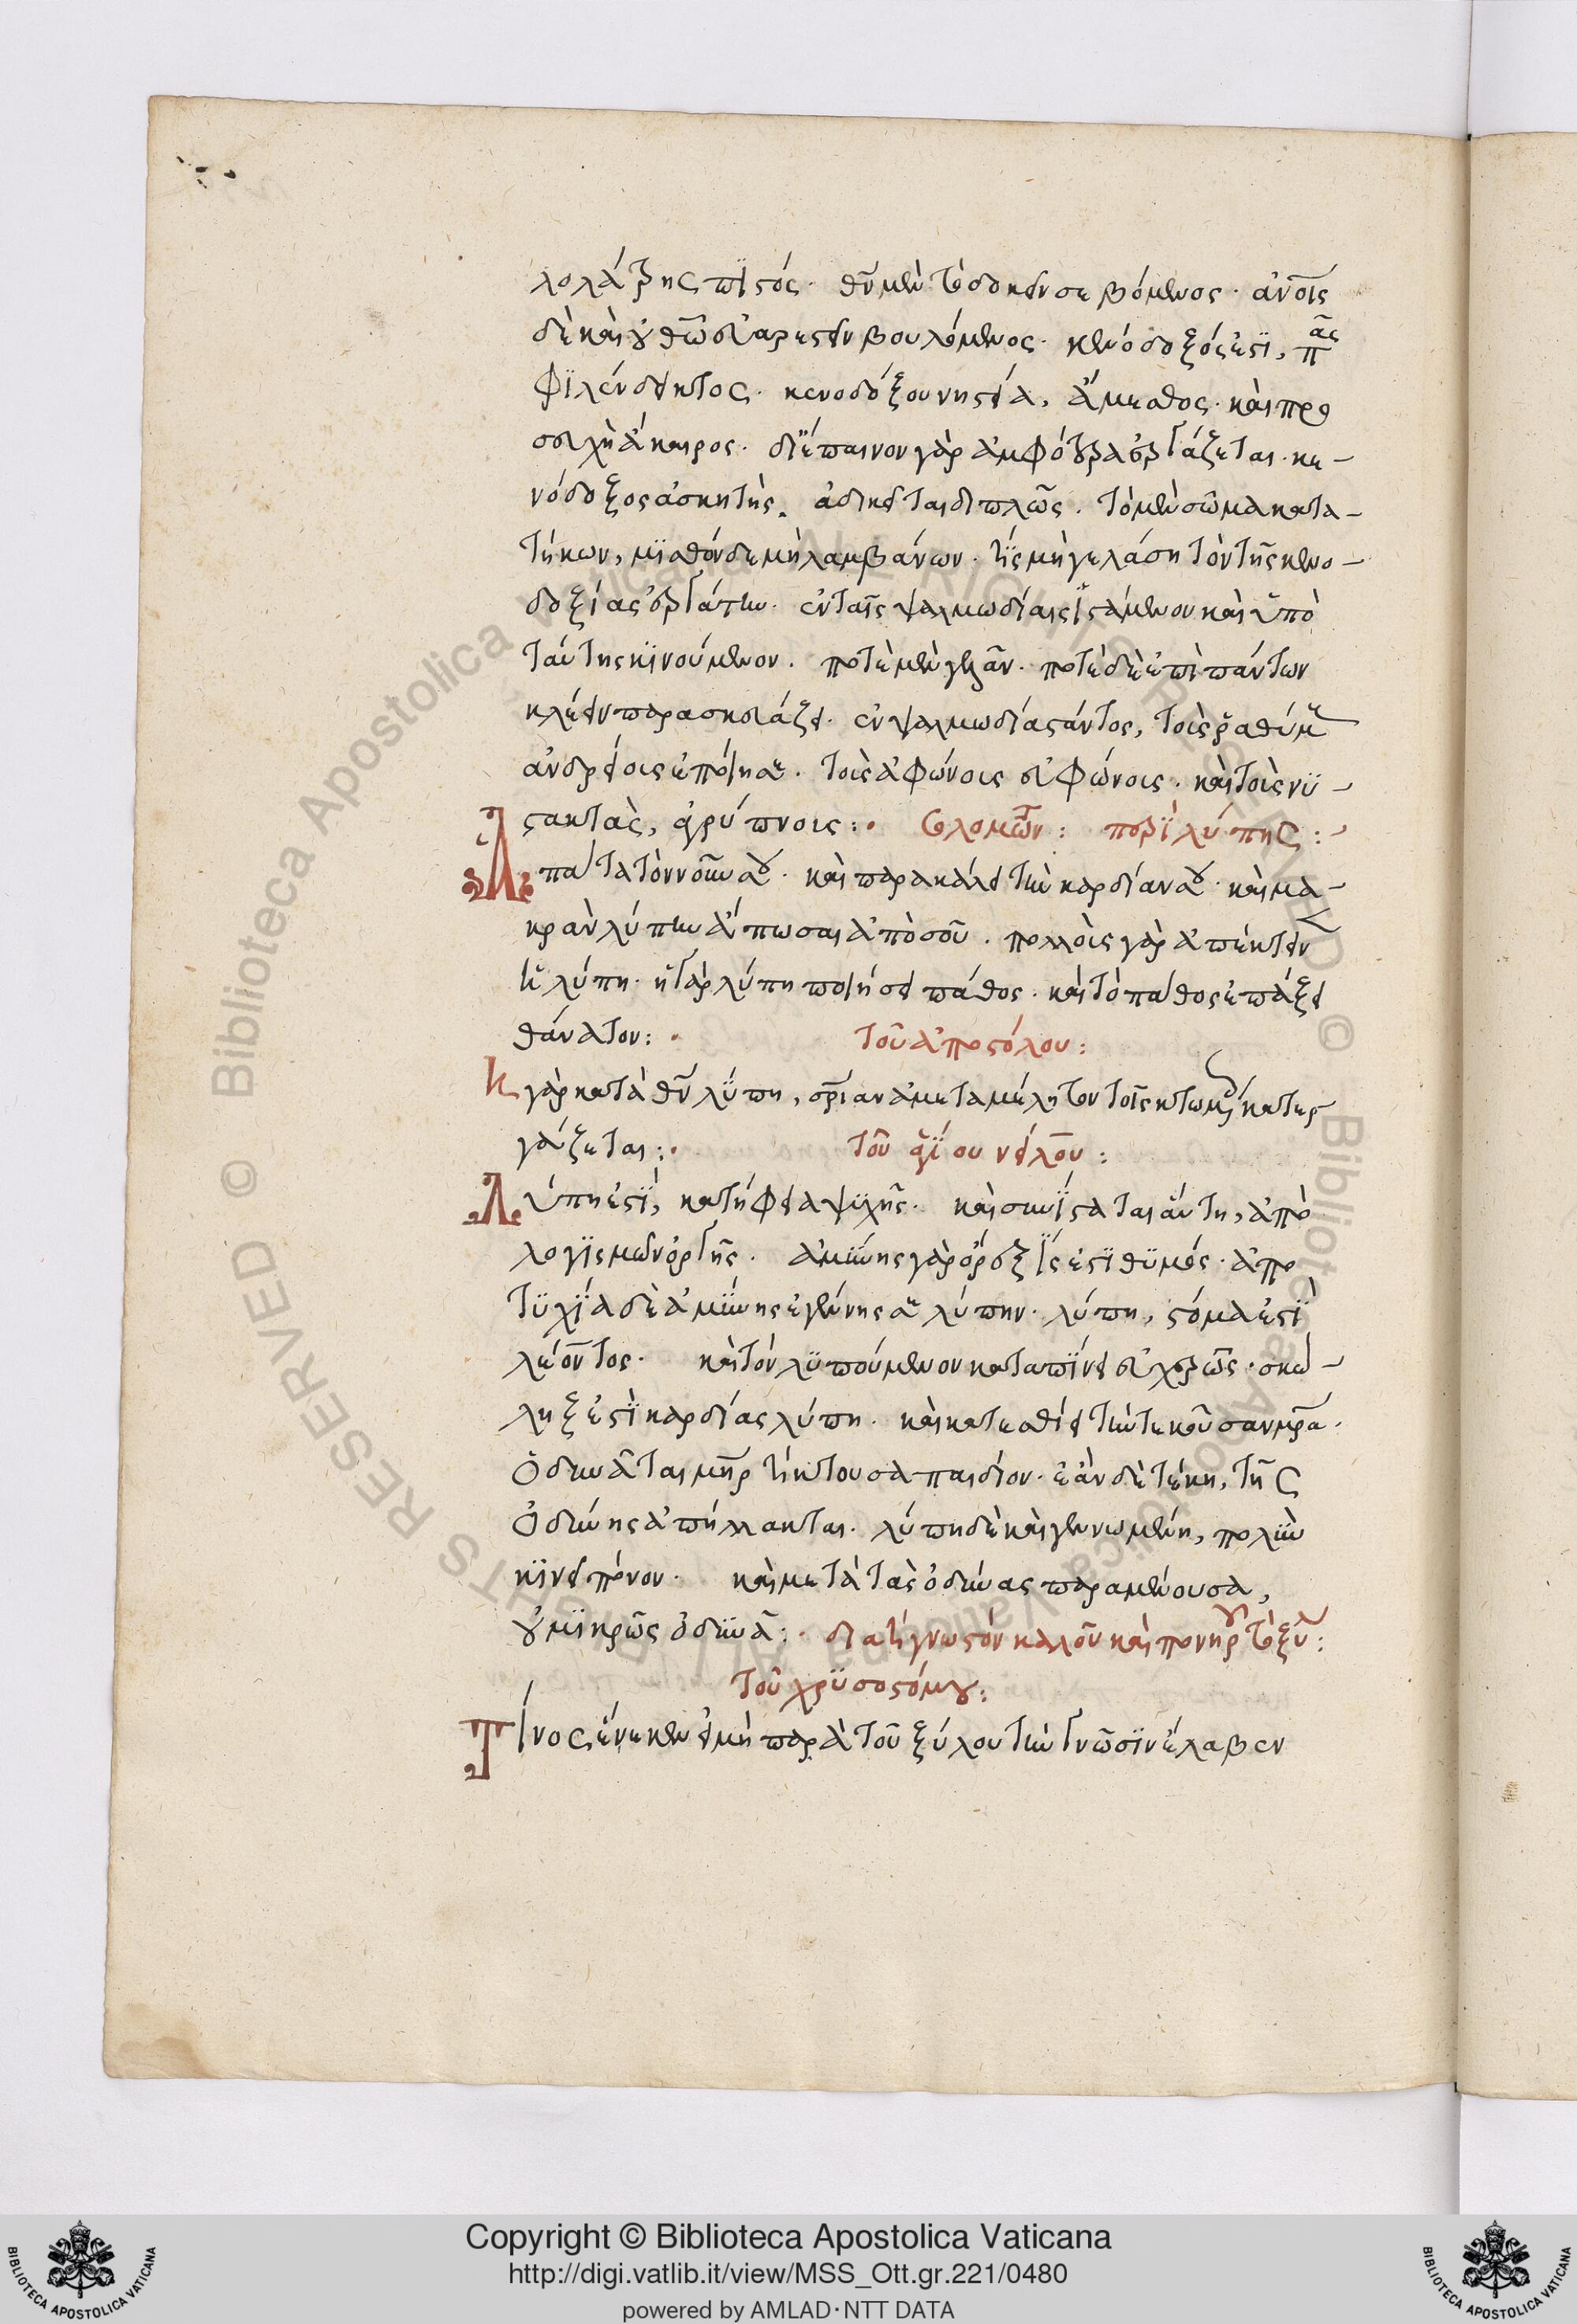 λολάτρης πϊστός· θν̃ μὲν τὸ δοκεῖν σεβόμενος· ἀνοῖς
δὲ καὶ οὐ θῶ εὐαρεστεῖν βουλόμενος· κενόδοξός ἐστϊ, πᾶς
φϊλένδεικτος· κενοδόξου νηστεία, ἄμισθος· καὶ προ
σευχὴ ἄκαιρος· δι' ἔπαινον γὰρ ἀμφότερα ἐργάζεται· κε-
νόδοξος ἀσκητὴς, ἀδικεῖται διπλῶς· τὸ μὲν σῶμα κατα-
τήκων, μϊσθὸν δὲ μὴ λαμβάνων· τίς μὴ γελάση τὸν τῆς κενο-
δοξίας ἐργάτην· ἐν ταῖς ψαλμωδίαις ἱστάμενον καὶ ὑπὸ
ταύτης κϊνούμενον· ποτὲ μὲν γελᾶν· ποτὲ δὲ ἐπὶ πάντων
κλαίειν παρασκευάζει· ἐν ψαλμωδία στάντος, τοὺς ῥαθύμους
ἀνδρείους ἐποίησεν· τοὺς ἀφώνους εὐφώνους· καὶ τοὺς νϋ-
στακτὰς, ἀγρύπνους:· σολομῶντος: περῒ λύπης:-
Ἀπάτα τὸν νοῦν σου· καὶ παρακάλει τὴν καρδίαν σου· καὶ μα-
κρὰν λύπην ἄπωσαι ἀπὸ σοῦ· πολλοὺς γὰρ ἀπέκτεινεν
ἡ λύπη· ἡ γὰρ λύπη ποιήσει πάθος· καὶ τὸ πάθος ἐπάξει
θάνατον:· τοῦ ἀποστόλου:
Η γὰρ κατὰ θν̃ λύπη, σρίαν ἀμεταμέλητον τοῖς κατεργ
γάζεται:· τοῦ ἁγίου νείλου:
Λύπη ἐστϊ, κατήφεια ψϋχῆς· καὶ συνίσταται αὕτη, ἀπὸ
λογϊσμῶν ὀργῆς· ἀμύνης γὰρ ὄρεξϊς ἐστϊ θϋμός· ἀπο
τϋχΐα δὲ ἀμύνης ἐγέννησεν λύπην· λύπη, στόμα ἐστϊ
λέοντος· καὶ τὸν λϋπούμενον καταπΐνει εὐχερῶς· σκώ-
ληξ ἐστϊ καρδίας λύπη· καὶ κατεσθίει τὴν τεκοῦσαν μρ̃α·
Ὀδυνᾶται μη̃ρ τίκτουσα παιδίον· ἐὰν δὲ τέκη, τῆς
ὀδύνης ἀπήλλακται· λύπη δὲ καὶ γεννωμένη, πολὺν
κϊνεῖ πόνον· καὶ μετὰ τὰς ὀδύνας παραμένουσα,
οὐ μϊκρῶς ὀδυνᾶ:· διατί γνωστὸν καλοῦ καὶ πονηροῦ τὸ ξύλον:
τοῦ χρϋσοστόμου:
Τίνος ἕνεκεν εἰ μὴ παρὰ τοῦ ξύλου τὴν γνῶσϊν ἔλαβεν
Copyright © Biblioteca Apostolica Vaticana
http://digi.vatlib.it/view/MSS_Ott.gr.221/0480
powered by AMLAD·NTT DATA